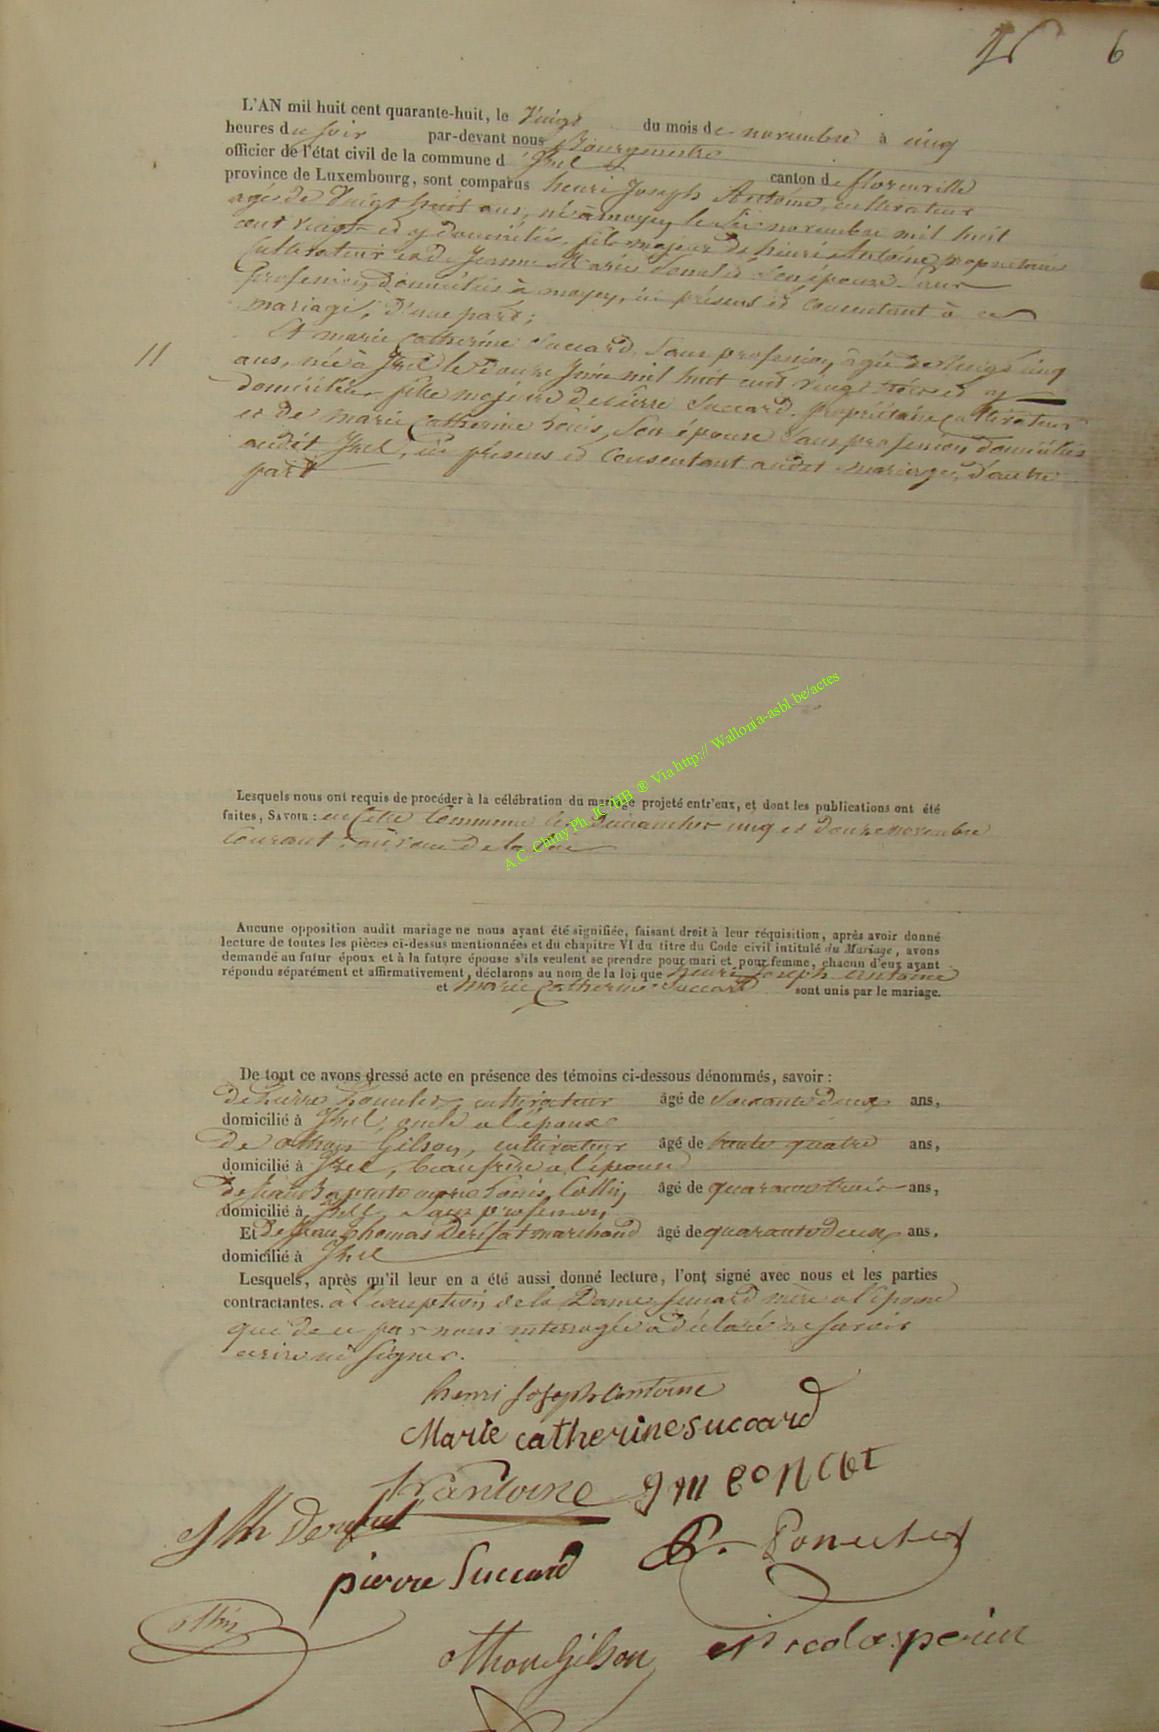 6
L'AN mil huit cent quarante-huit, le Vingt du mois de novembre à cinq
heures du soir par-devant nous Bourgmestre
officier de l'état civil de la commune d'Izel canton de florenville
province de Luxembourg, sont comparus henri Joseph Antoine, cultivateur
agé de Vingt huit ans, né à moyen le Six novembre mil huit
cent vingt et y domicilié, fils majeur de henri Antoine proprietaire
Cultivateur et de Jeanne Marie Ponsclet Son épouse Sans
profession, domiciliés à moyen, ici présens et consentant à ce
mariage, d'une part;
11
Et marie Catherine Succard, Sans profession, âgée de Vingt cinq
ans, née à Izel le douze Juin mil huit cent vingt trois et y
domiciliée, fille majeure de Pierre Succard, propriétaire Cultivateur
et de marie Catherine Louis, Son épouse Sans profession, domiciliés
audit Izel, ici présens et Consentant audit mariage, d'autre
part
Lesquels nous ont requis de procéder à la célébration du mariage projeté entr'eux, et dont les publications ont été
faites, SAVOIR : en Cette Commune les Dimanches cinq et douze novembre
Courant
A.C. Chiny Ph. JC/HB ® Via http:// Wallonia-asbl.be/actes
Aucune opposition audit mariage ne nous ayant été signifiée, faisant droit à leur réquisition, après avoir donné
lecture de toutes les pièces ci-dessus mentionnées et du chapitre VI du titre du Code civil intitulé du Mariage, avons
demandé au futur époux et à la future épouse s'ils veulent se prendre pour mari et pour femme, chacun d'eux ayant
répondu séparément et affirmativement, déclarons au nom de la loi que henri Joseph Antoine
et Marie Catherine Succard sont unis par le mariage.
De tout ce avons dressé acte en présence des témoins ci-dessous dénommés, savoir :
de Pierre Ponsclet, cultivateur âgé de Soixante deux ans,
domicilié à Izel, oncle a l'époux
de Gilson, cultivateur âgé de trente quatre ans,
domicilié à Izel, beau frère a l'épouse
de Louis Collin, âgé de quarante trois ans,
domicilié à Izel, Sans profession,
Et de Jean thomas marchand âgé de quarante deux ans.
domicilié à Izel
Lesquels, après qu'il leur en a été aussi donné lecture, l'ont signé avec nous et les parties
contractantes. à l'exception de la Dame Succard mère a l'épouse
qui de ce par nous interrogée a déclaré ne savoir
écrire ni Signer.
henri Joseph Antoine
Marie catherine succard
h antoine
pierre Succard
Gilson Nicolas perin